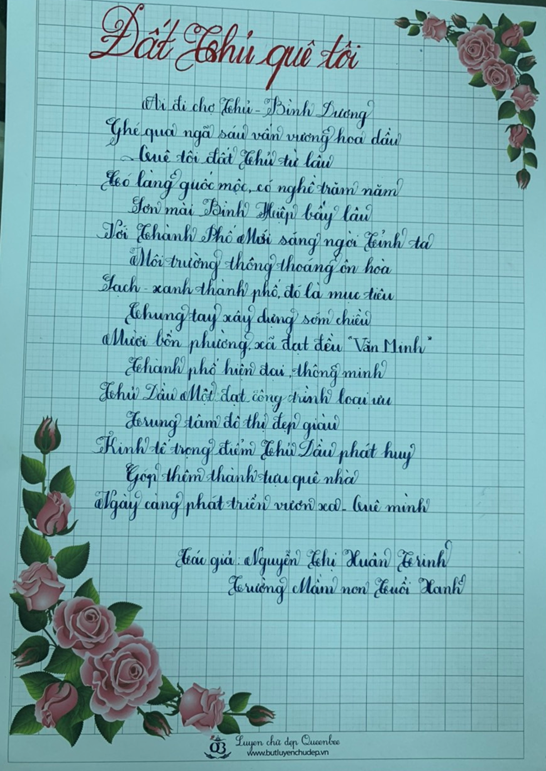 Đất Thủ quê tôi
Ai đi chợ Thủ - Bình Dương
Ghé qua ngã sáu vấn vương hoa dầu
Quê tôi đất Thủ từ lâu
Có làng guốc mộc, có nghề trăm năm
Sơn mài Bình Hiệp bấy lâu
Với Thành Phố Mới sáng ngời Tỉnh ta
Môi trường thông thoáng ôn hòa
Sạch - xanh thành phố, đó là mục tiêu
Chung tay xây dựng sớm chiều
Mười bốn phường, xã đạt đều "Văn Minh"
Thành phố hiện đại, thông minh
Thủ Dầu Một đạt công trình loại ưu
Trung tâm đô thị đẹp giàu
Kinh tế trọng điểm Thủ Dầu phát huy
Góp thêm thành tựu quê nhà
Ngày càng phát triển vươn xa - Quê mình
Tác giả: Nguyễn Thị Xuân Trinh
Trường Mầm non Tuổi Xanh
Luyện chữ đẹp Queenbee
www.butluyenchudep.vn